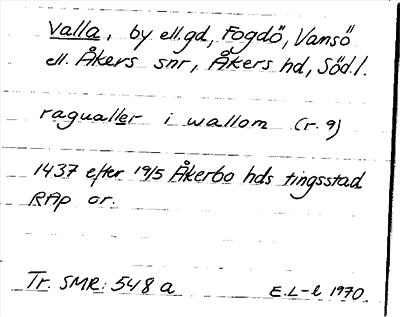 Valla, by ell.gd, Fogdö, Vansö
ell. Åkers snr, Åkers hd, Söd.l.
ragualler i wallom (r. 9)
1437 efter 19/5 Åkerbo hds tingsstad
RAp or.
Tr. SMR: 548 a E.L-l 1970